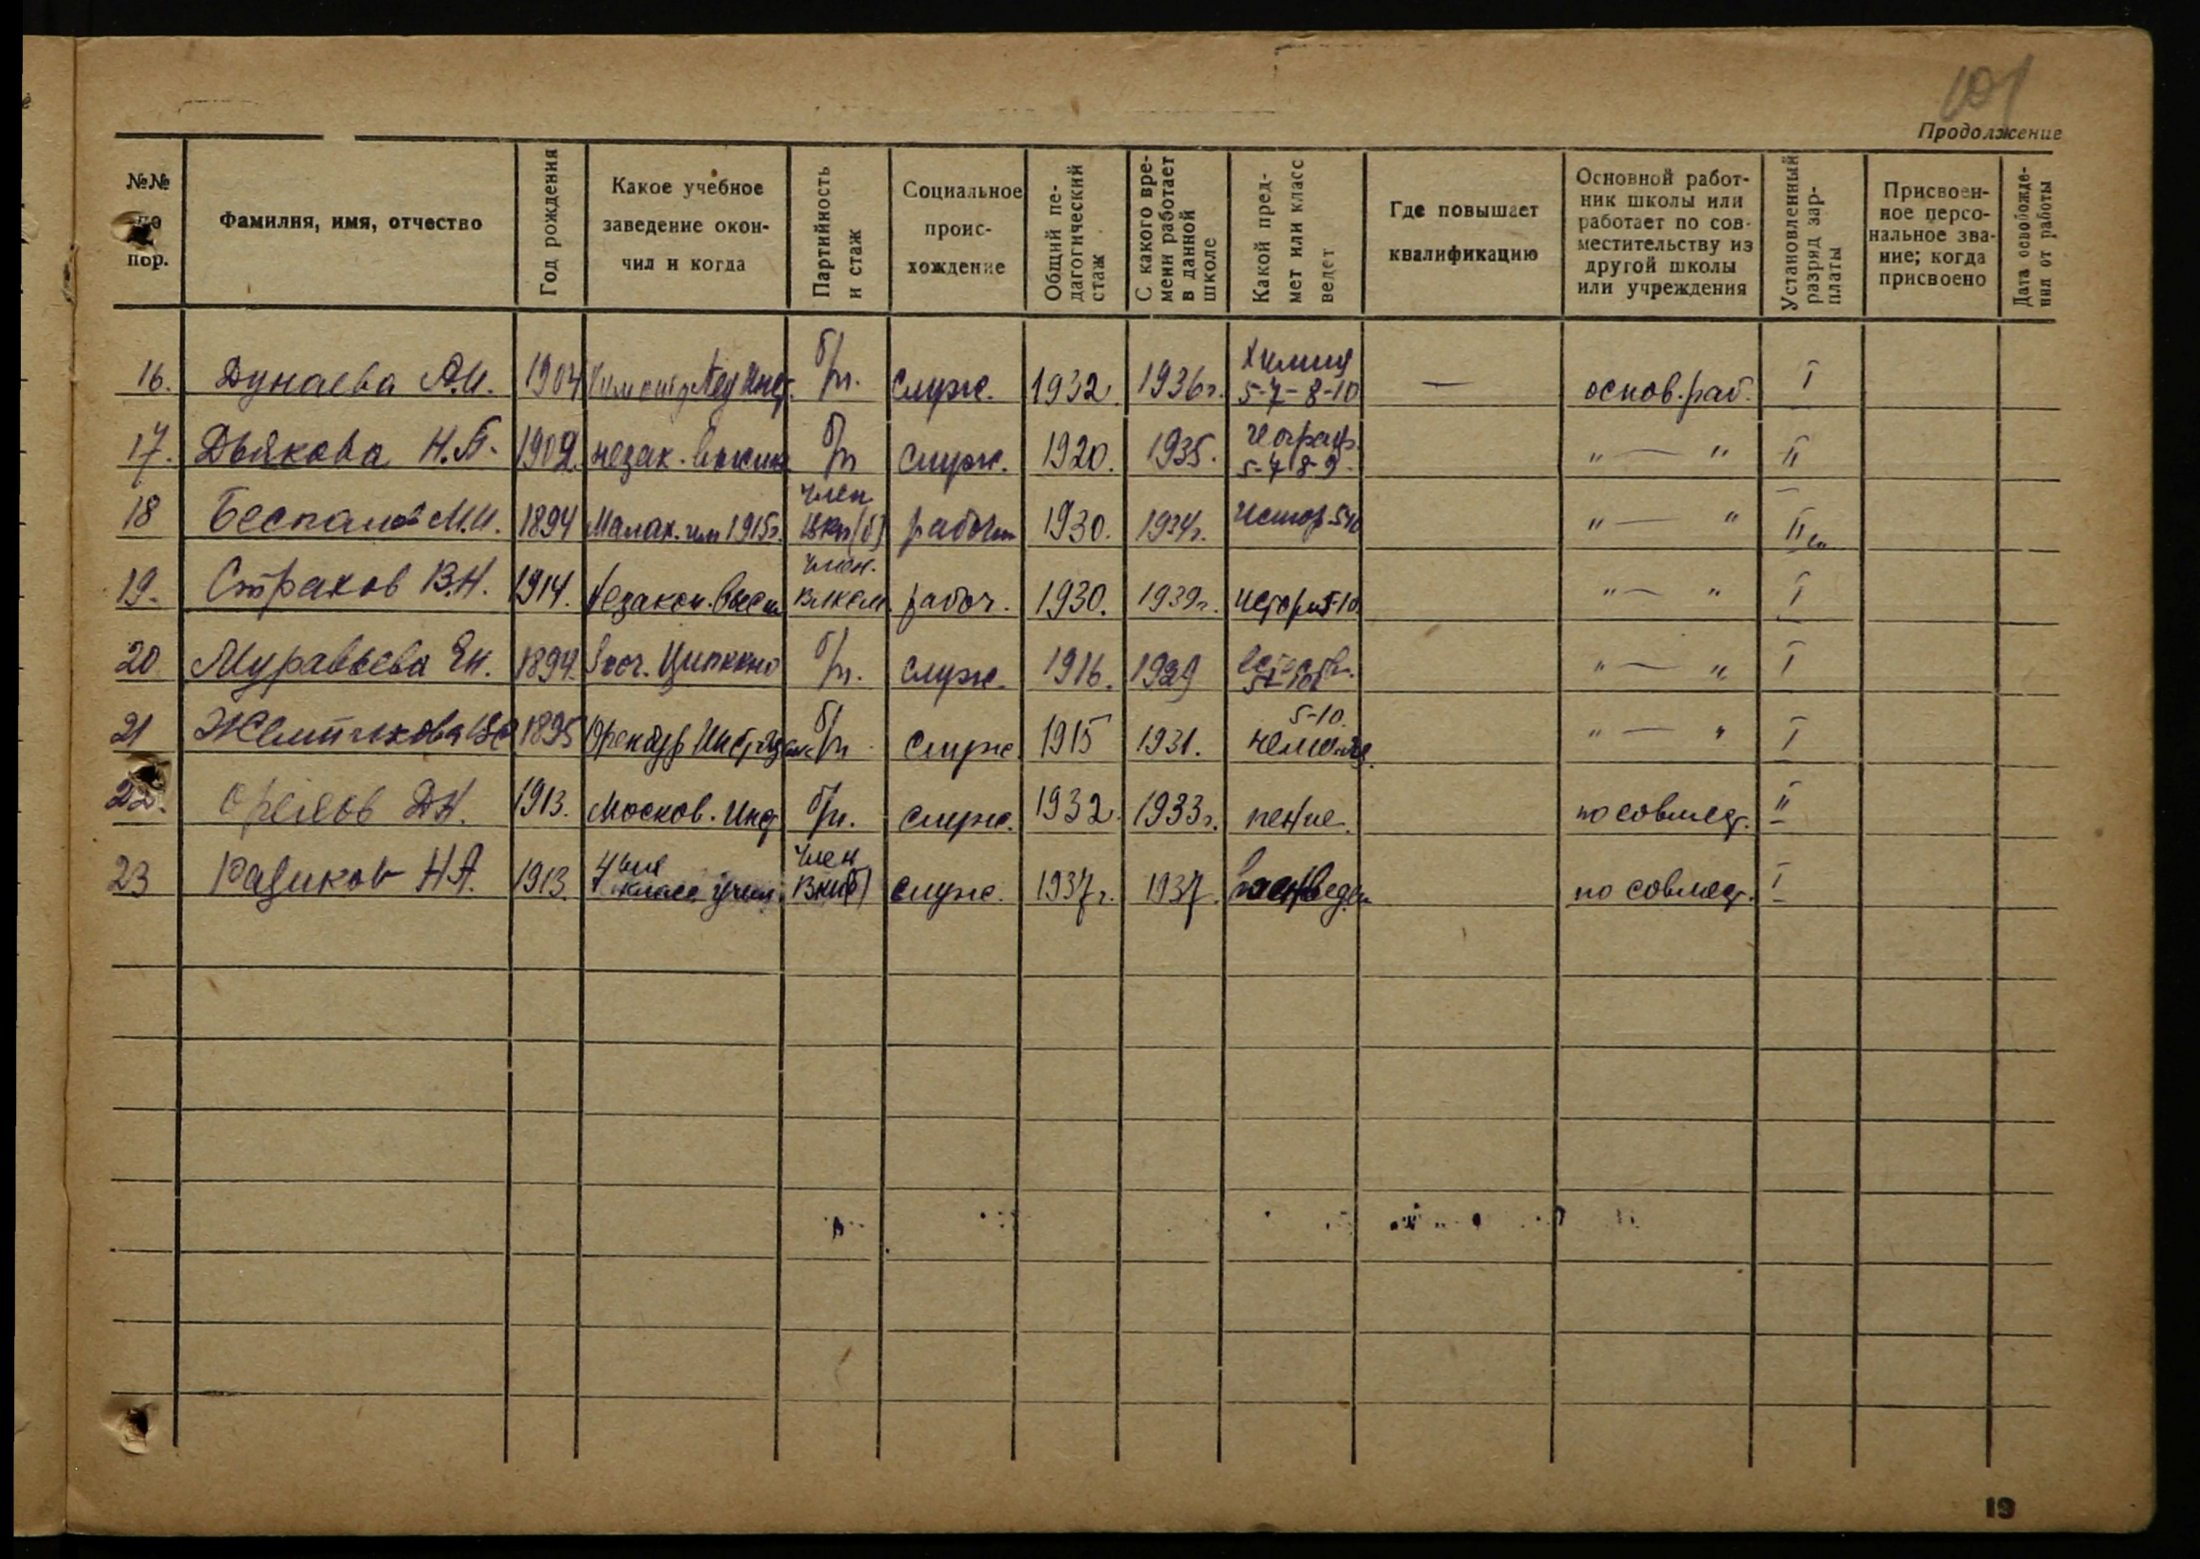 101
Продолжение
№№ по пор. Фамилия, имя, отчество Год рождения Какое учебное заведение окончил и когда Партийность и стаж Социальное происхождение Общий педагогический стаж С какого времени работает в данной школе Какой предмет или класс ведет Где повышает квалификацию Основной работник школы или работает по совместительству из другой школы или учреждения Установленный разряд зарплаты Присвоенное персональное звание; когда присвоено Дата освобождения от работы
16. Дунаева А.И. 1904 Пед Инст. б/п. служ. 1932. 1936г. Химия 5-7-8-10 — основ. раб. I
17. Дьякова Н.П. 1902 незак. высш б/п служ. 1920. 1935. Географ. 5-7 8-9. " — " II
18 Беспалов М.И. 1894 1915г. член ВКП(б) рабоч 1930. 1934г. Истор. 5-10 " — " II
19. Страхов В.Н. 1914. Незакон. высш член. ВЛКСМ рабоч. 1930. 1939г. Истори 5-10 " — " I
20 Муравьева Ен. 1894. б/п. служ. 1916. 1929 Естеств. 5-10 " — " I
21 1895 б/п. служ 1915 1931. 5-10. " — " I
22. Орлов Д.Н. 1913. Москов. Инст б/п. служ. 1932. 1933г. пение. по совмест. II
23 Радиков Н.А. 1913. класс. учил. член ВКП(б) служ. 1937г. 1937. военвед по совмест. I
19